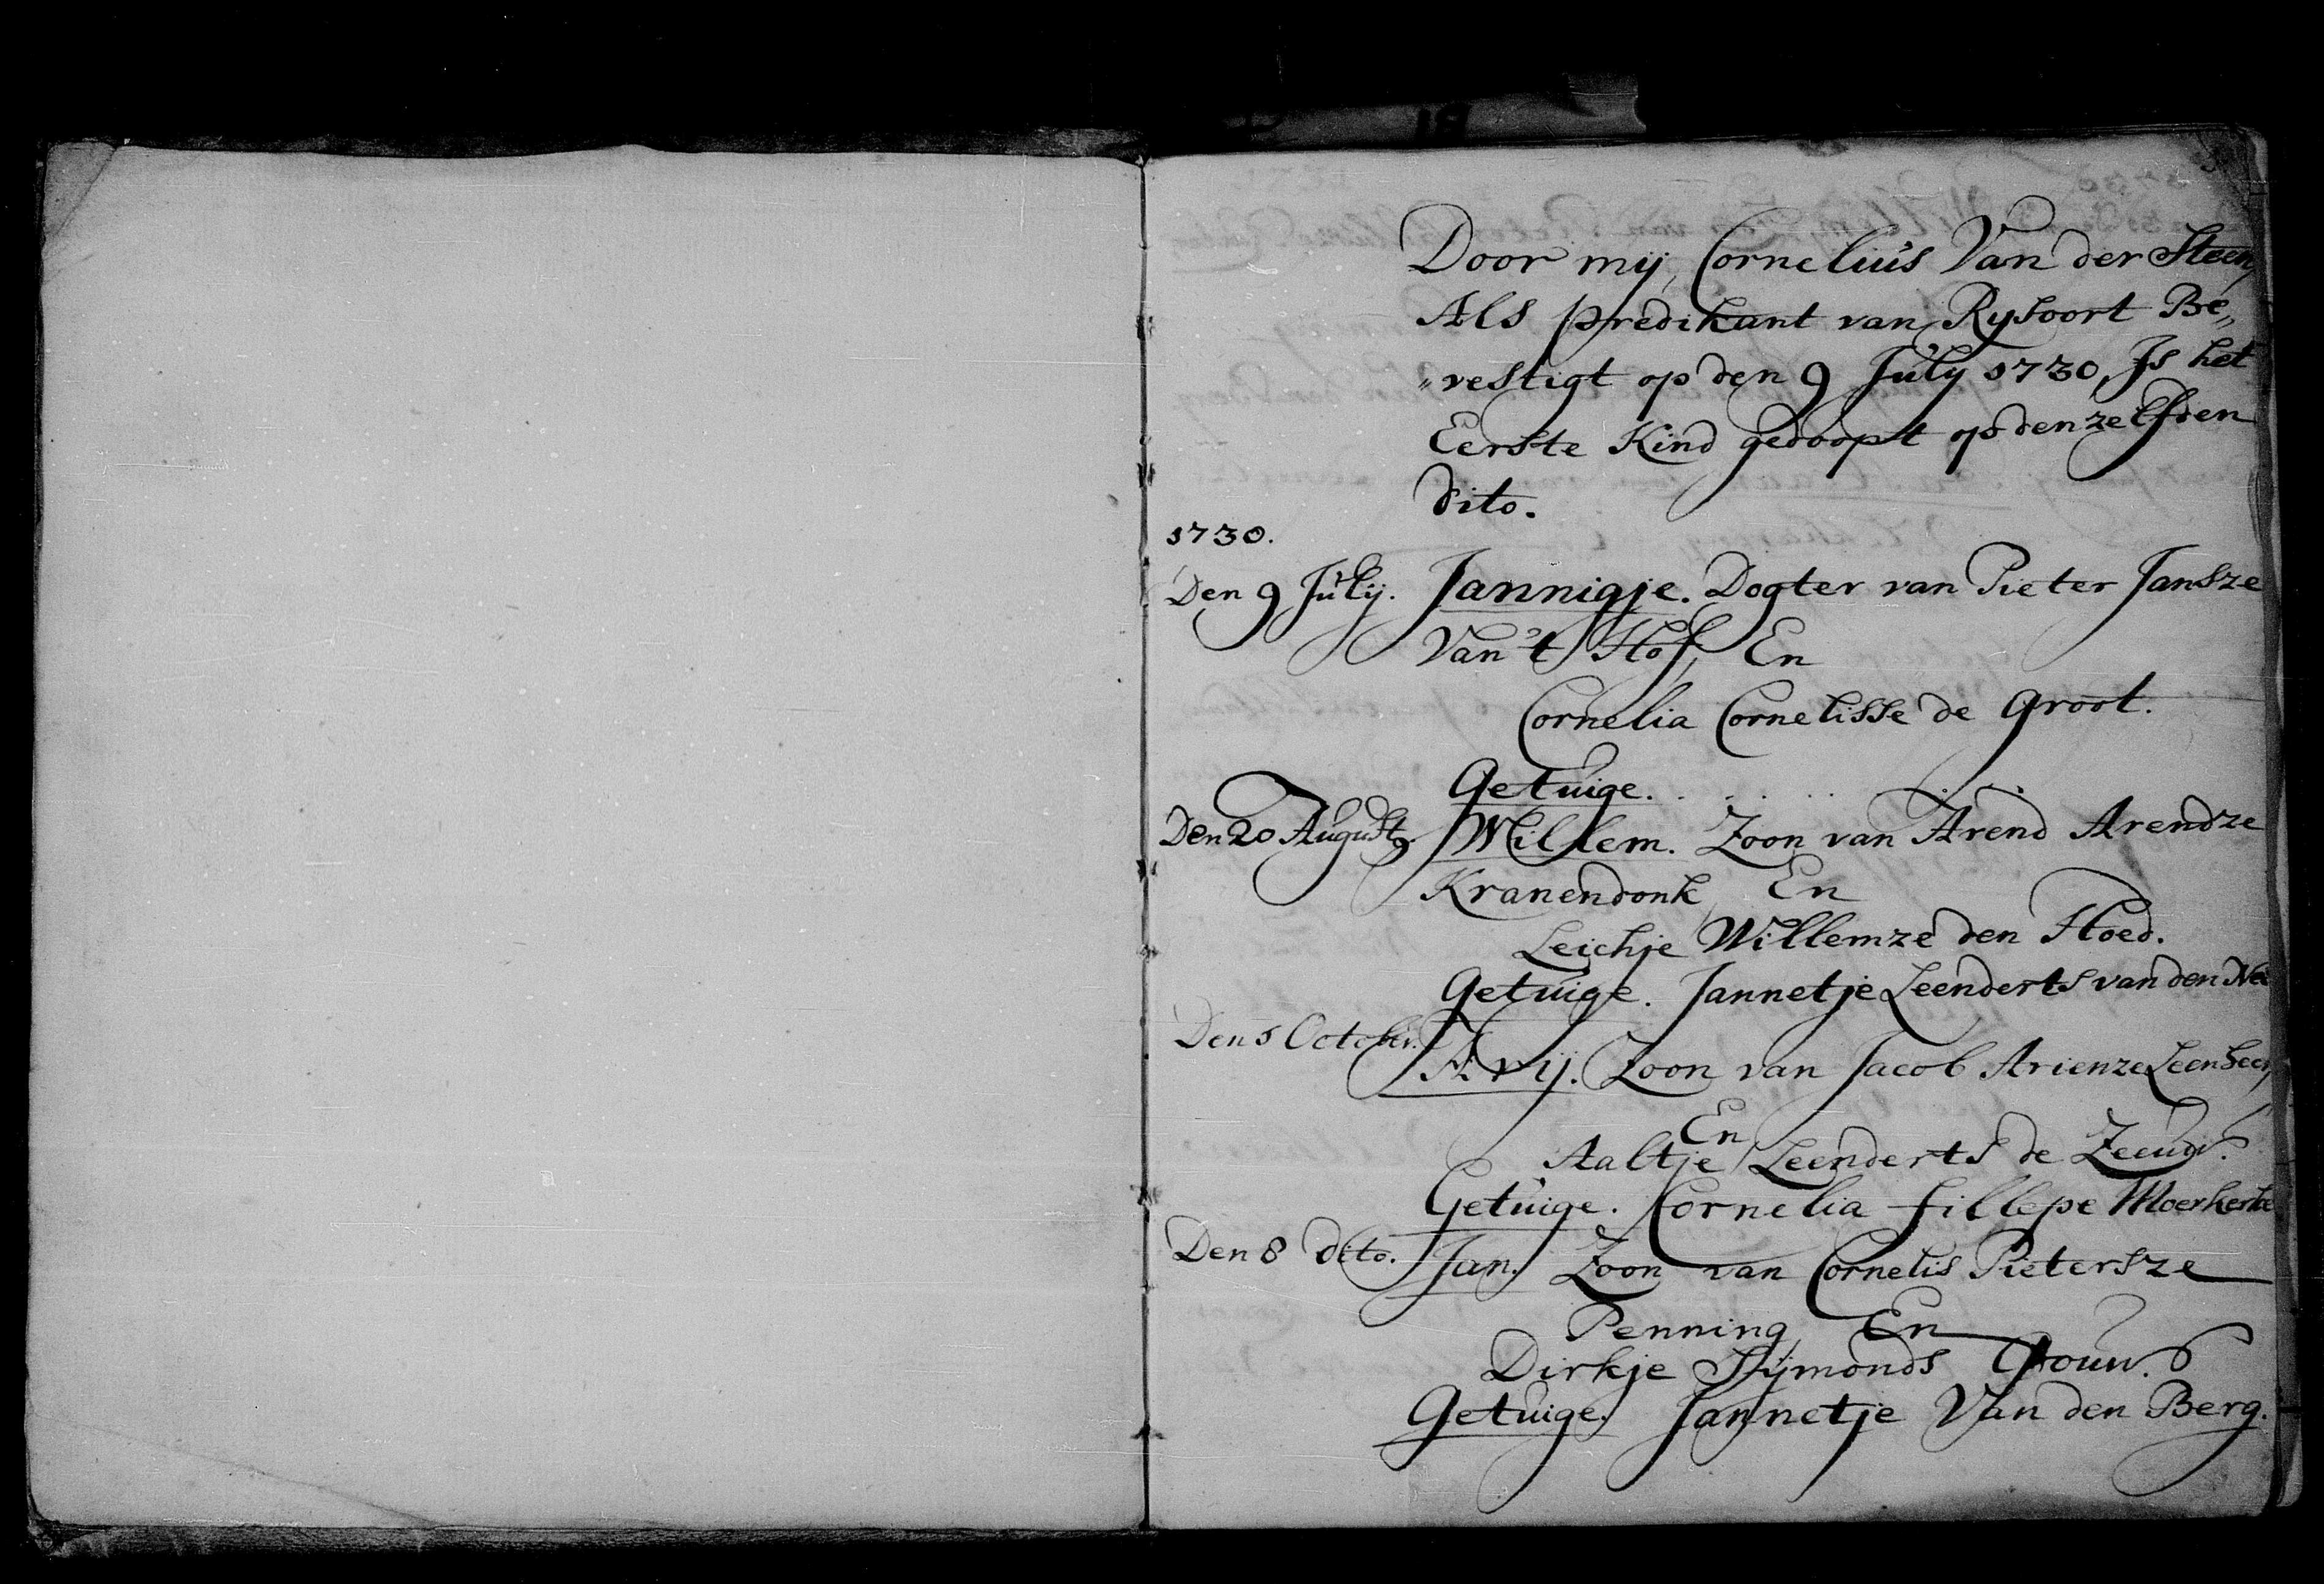 Door mij, Cornelius Van der Steen,
Als predikant van Rysoort Be„
„vestigt op den 9 July 1730, Is het
Eerste Kind gedoopt op denzelfden
dito.
1730.
Den 9 Julij. Jannigje. Dogter van Pieter Jansze
Van 't Hof, En
Cornelia Cornelisse de Groot.
Getuige. . . . . . . .
Den 20 August9. Willem. Zoon van Arend Arendze
Kranendonk, En
Leichje Willemze den Hoed.
Getuige. Jannetje Leenderts van den
Den 1 Octob. Arij. Zoon van Jacob Arienze Leenheer,
En
Aaltje Leenderts de Zeeuw.
Getuige. Cornelia fillepe Moerkerke
Den 8 dito. Jan. Zoon van Cornelis Pietersze
Penning, En
Dirkje Sijmonds
Getuige. Jannetje Van den Berg.